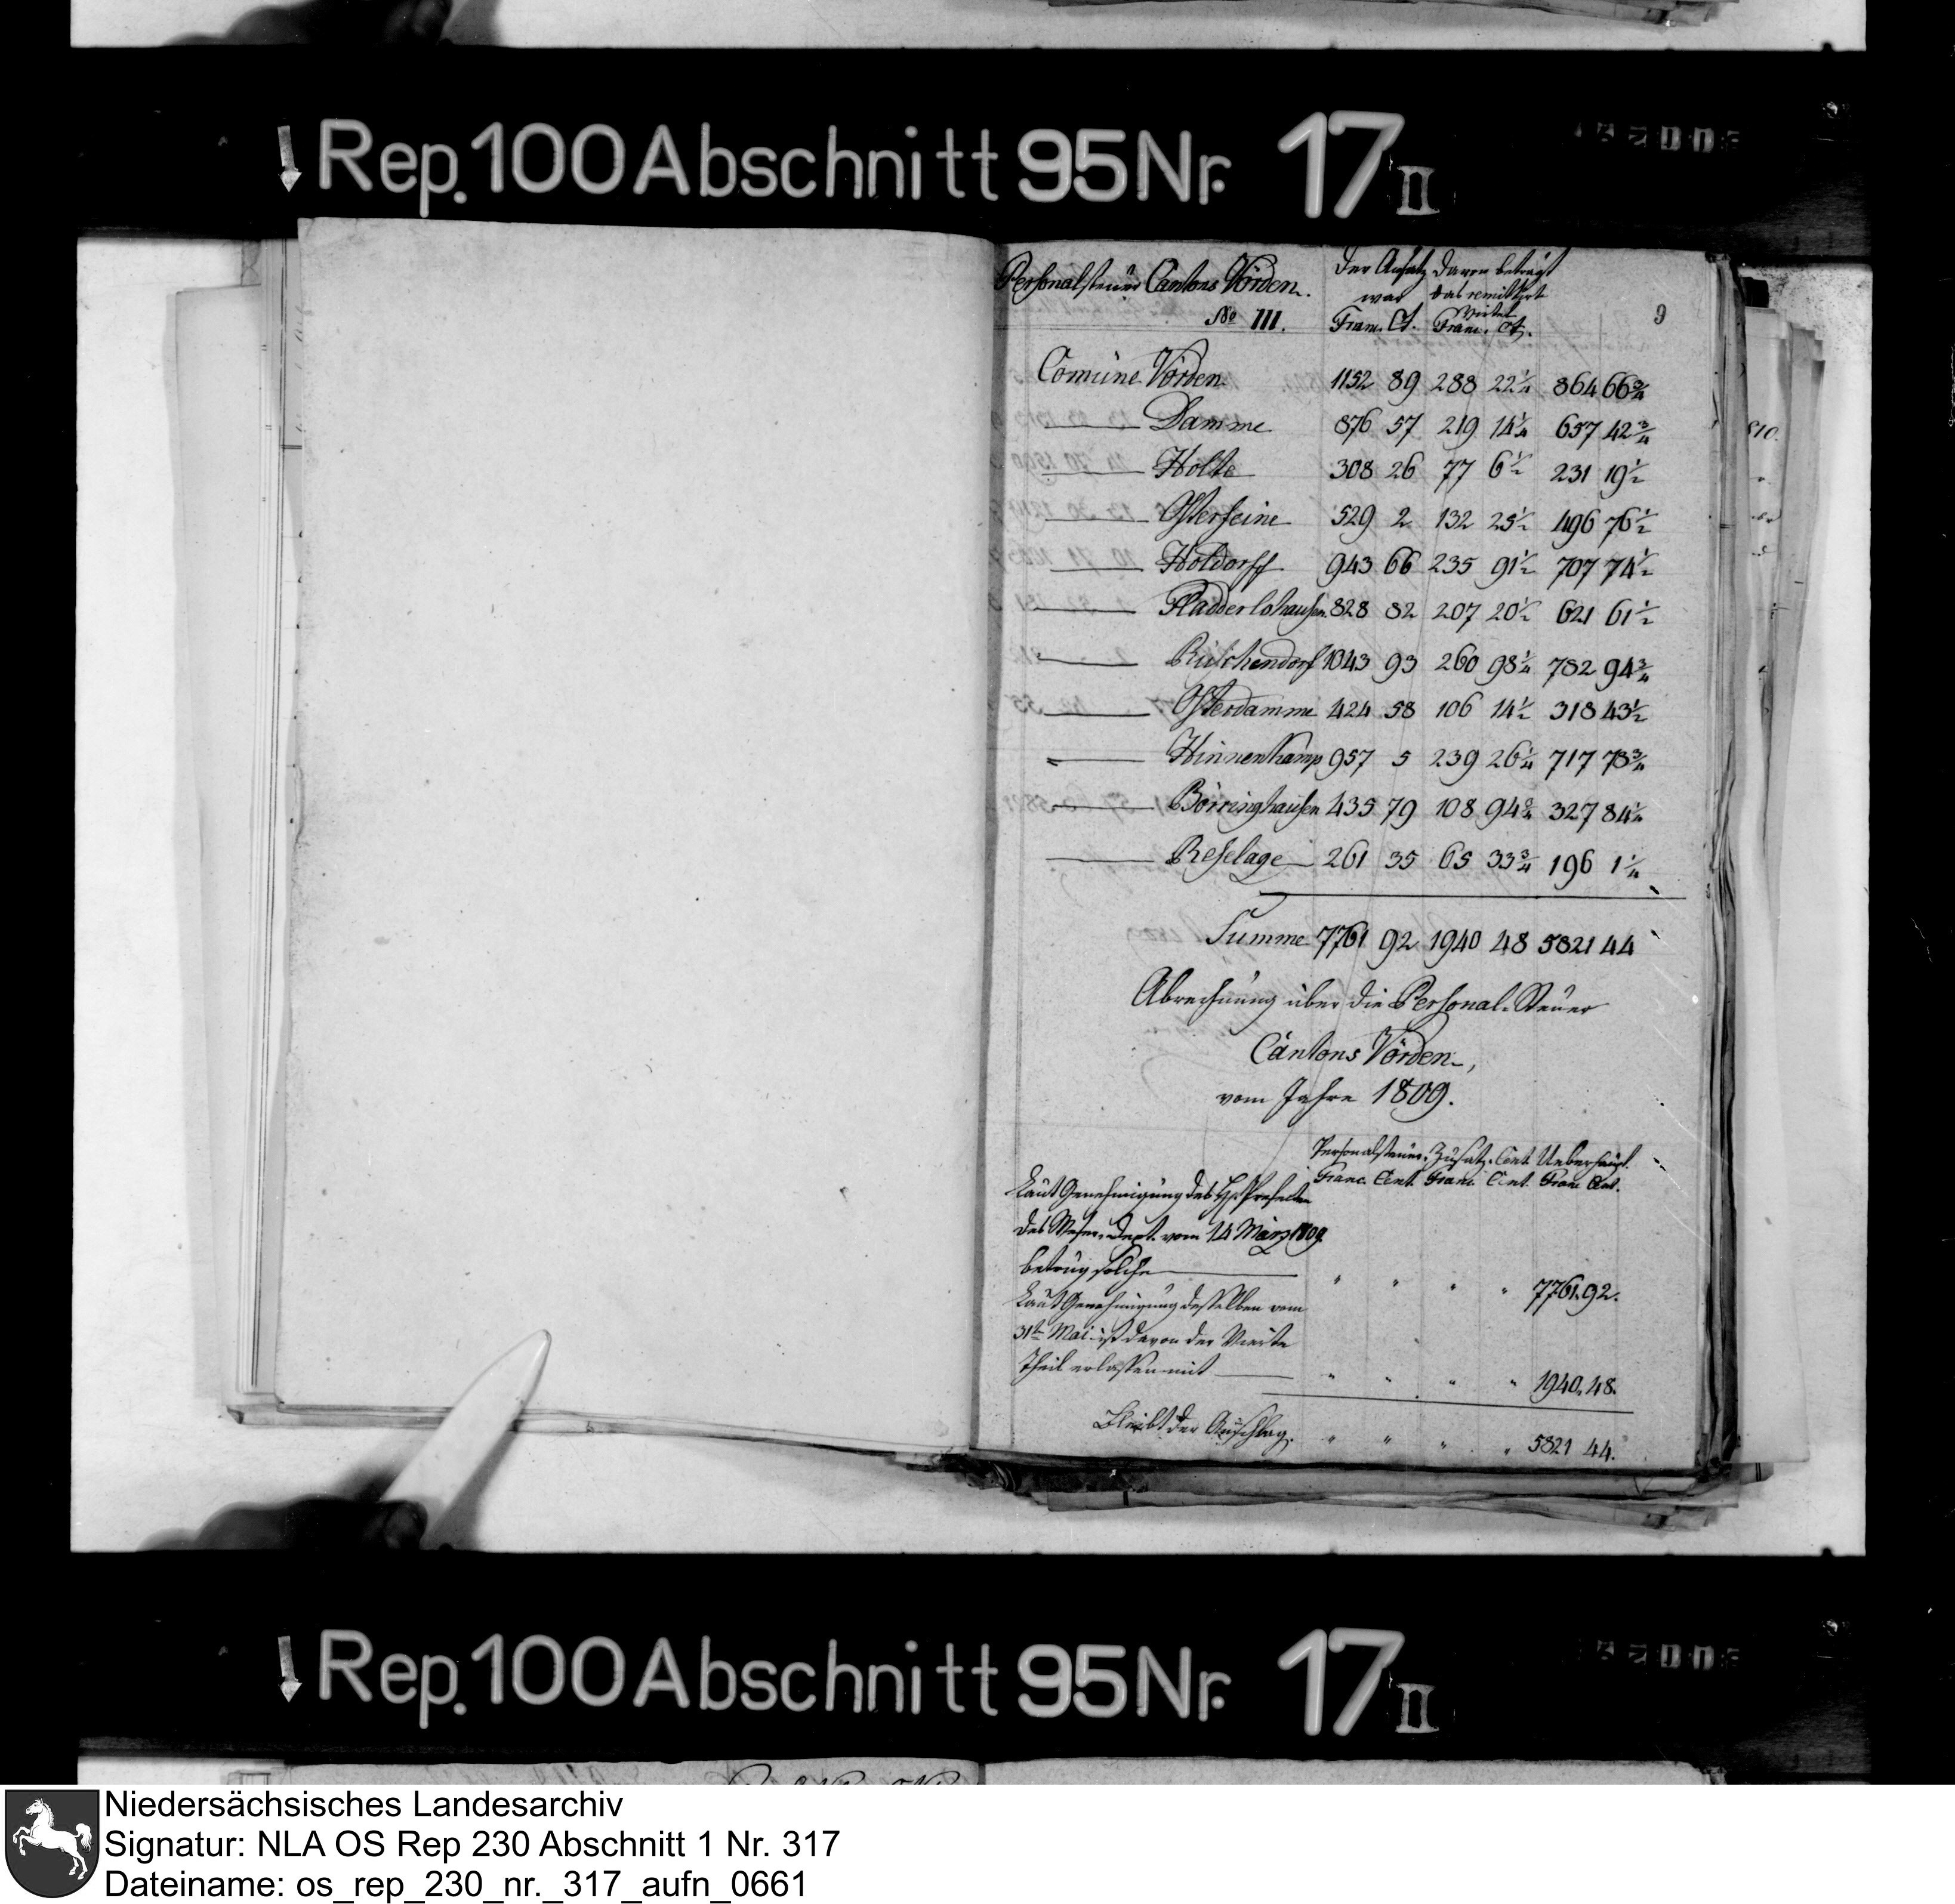 Rep. 100 Abschnitt 95 Nr. 17 II
Personalsteuer Cantons Vörden.
No III.
Der Ansatz war Franc. Ct.
Davon beträgt das remittirte Viertel Franc. Ct.
9
Comüne Vörden 1152 89 288 22¼ 864 66¾
Damme 876 57 219 14¼ 657 42¾
Holte 308 26 77 6½ 231 19½
Osterfeine 529 2 132 25½ 496 76½
Holdorff 943 66 235 91½ 707 74½
Fladderlohausen 828 82 207 20½ 621 61½
Rüschendorf 1043 93 260 98¼ 782 94¾
Osterdamme 424 58 106 14½ 318 43½
Hinnenkamp 957 5 239 26¼ 717 78¾
Börringhausen 435 79 108 94¾ 327 84¼
Reselage 261 35 65 33¾ 196 1¼
Summe 7761 92 1940 48 5821 44
Abrechnung über die Personal-Steuer
Cantons Vörden,
vom Jahre 1809.
Personalsteuer. Zusatz-Cent. Ueberhaupt.
Franc. Cent. Franc. Cent. Franc. Cent.
Laut Genehmigung des H. Prefecten
des Weser-Dept. vom 14 März 1809
betrug solche " " " " 7761. 92.
Laut Genehmigung desselben vom
31t Mai ist davon der Vierte
Theil erlassen mit " " " " 1940. 48.
Bleibt der Anschlag. " " " " 5821 44.
810.
Rep. 100 Abschnitt 95 Nr. 17 II
Niedersächsisches Landesarchiv
Signatur: NLA OS Rep 230 Abschnitt 1 Nr. 317
Dateiname: os_rep_230_nr._317_aufn_0661